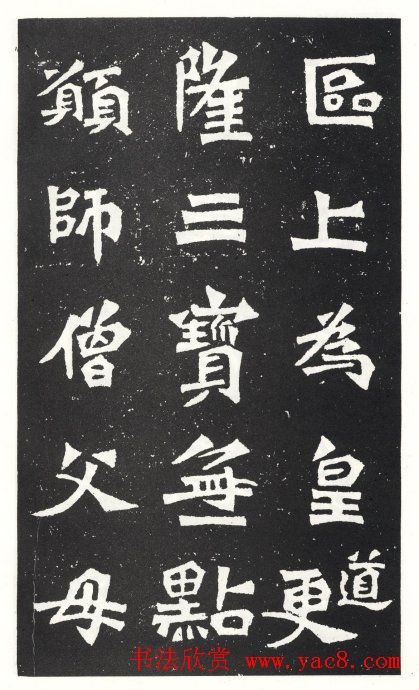 區上為皇道更
隆三寶無點
願師僧父母
书法欣赏 www.yac8.com